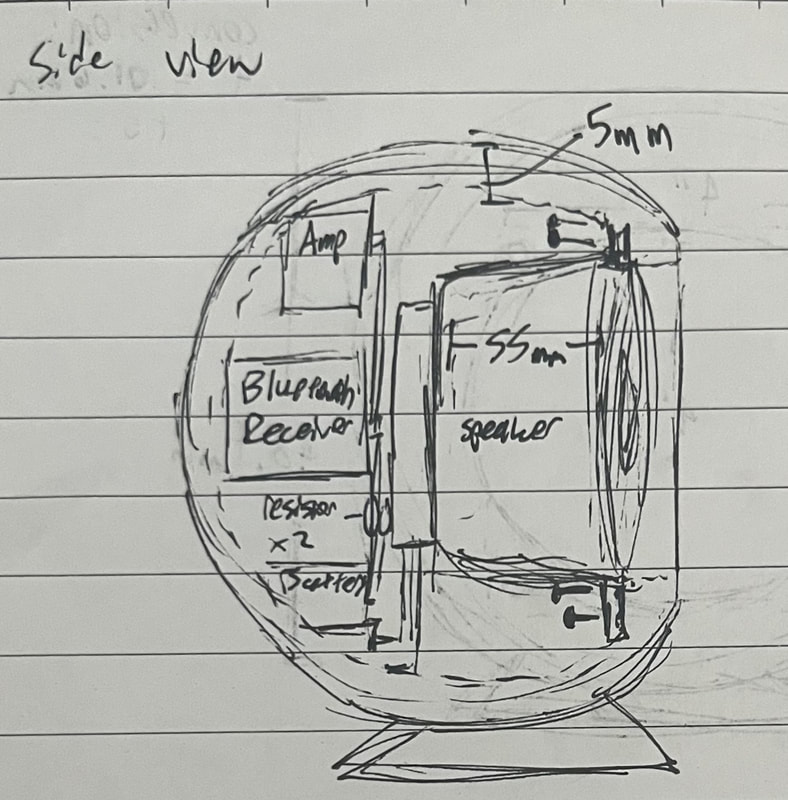 side view
5mm
Amp
55mm
Bluetooth
Receiver
speaker
resistor
x2
Battery